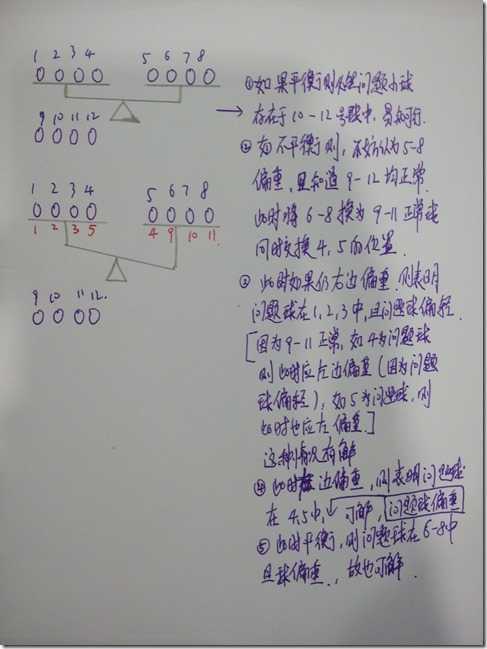 1 2 3 4
5 6 7 8
9 10 11 12
1 2 3 4
5 6 7 8
1 2 3 5
4 9 10 11
9 10 11 12
①如果平衡则必然问题小球
存在于10-12号球中,易知可行.
②如不平衡则,不妨认为5-8
偏重,且知道9-12均正常.
此时将6-8换为9-11正常球
同时交换4,5的位置.
③此时如果仍右边偏重.则表明
问题球在1,2,3中,且问题球偏轻.
[因为9-11正常,如4为问题球
则此时应左边偏重(因为问题
球偏轻),如5为问题球,则
此时也应左偏重.]
这种情况有解
④此时左边偏重,则表明问题球
在4,5中,可解,问题球偏重
⑤此时平衡,则问题球在6-8中
且球偏重,故也可解.